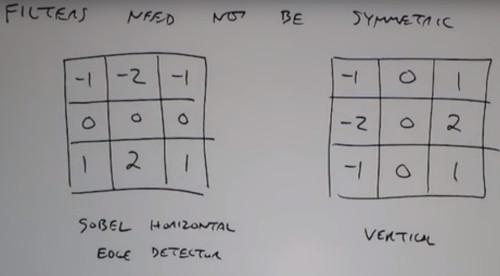 FILTERS NEED NOT BE SYMMETRIC
-1 -2 -1
0 0 0
1 2 1
SOBEL HORIZONTAL
EDGE DETECTOR
-1 0 1
-2 0 2
-1 0 1
VERTICAL